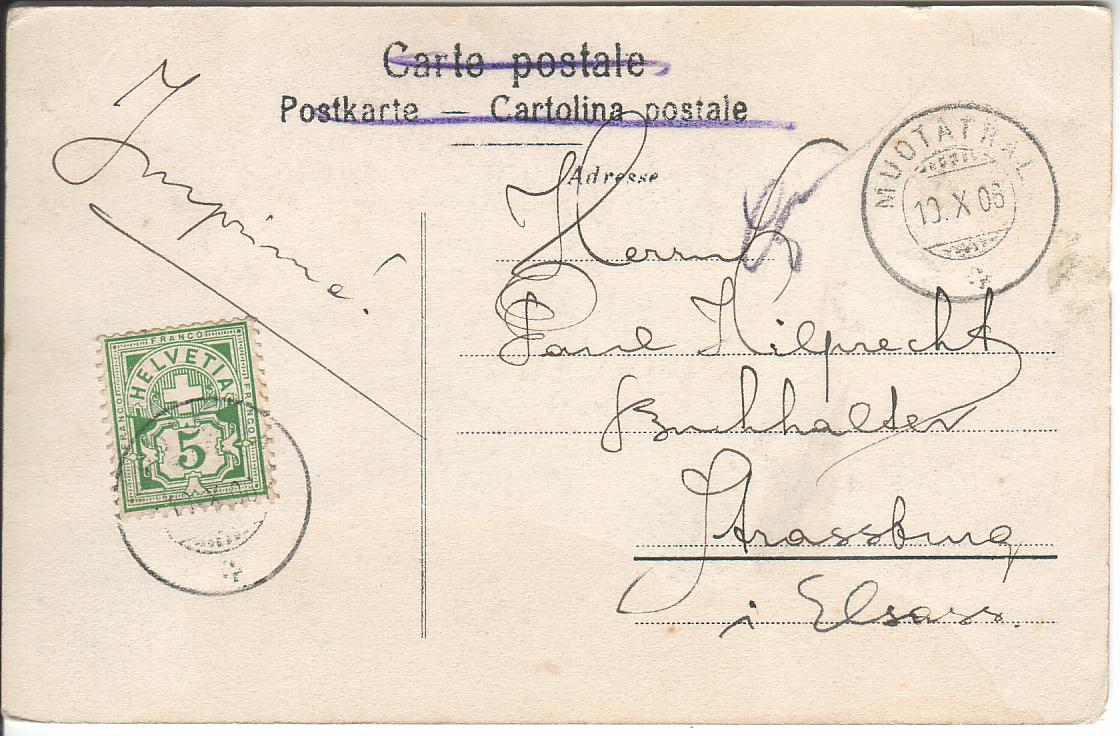 Carte postale
Postkarte — Cartolina postale
Adresse
Imprimé.
MUOTATHAL
10. X 06
Herrn
Paul Hilprecht
Buchhalter
Strassburg
i Elsass.
FRANCO
HELVETIA
FRANCO
FRANCO
5